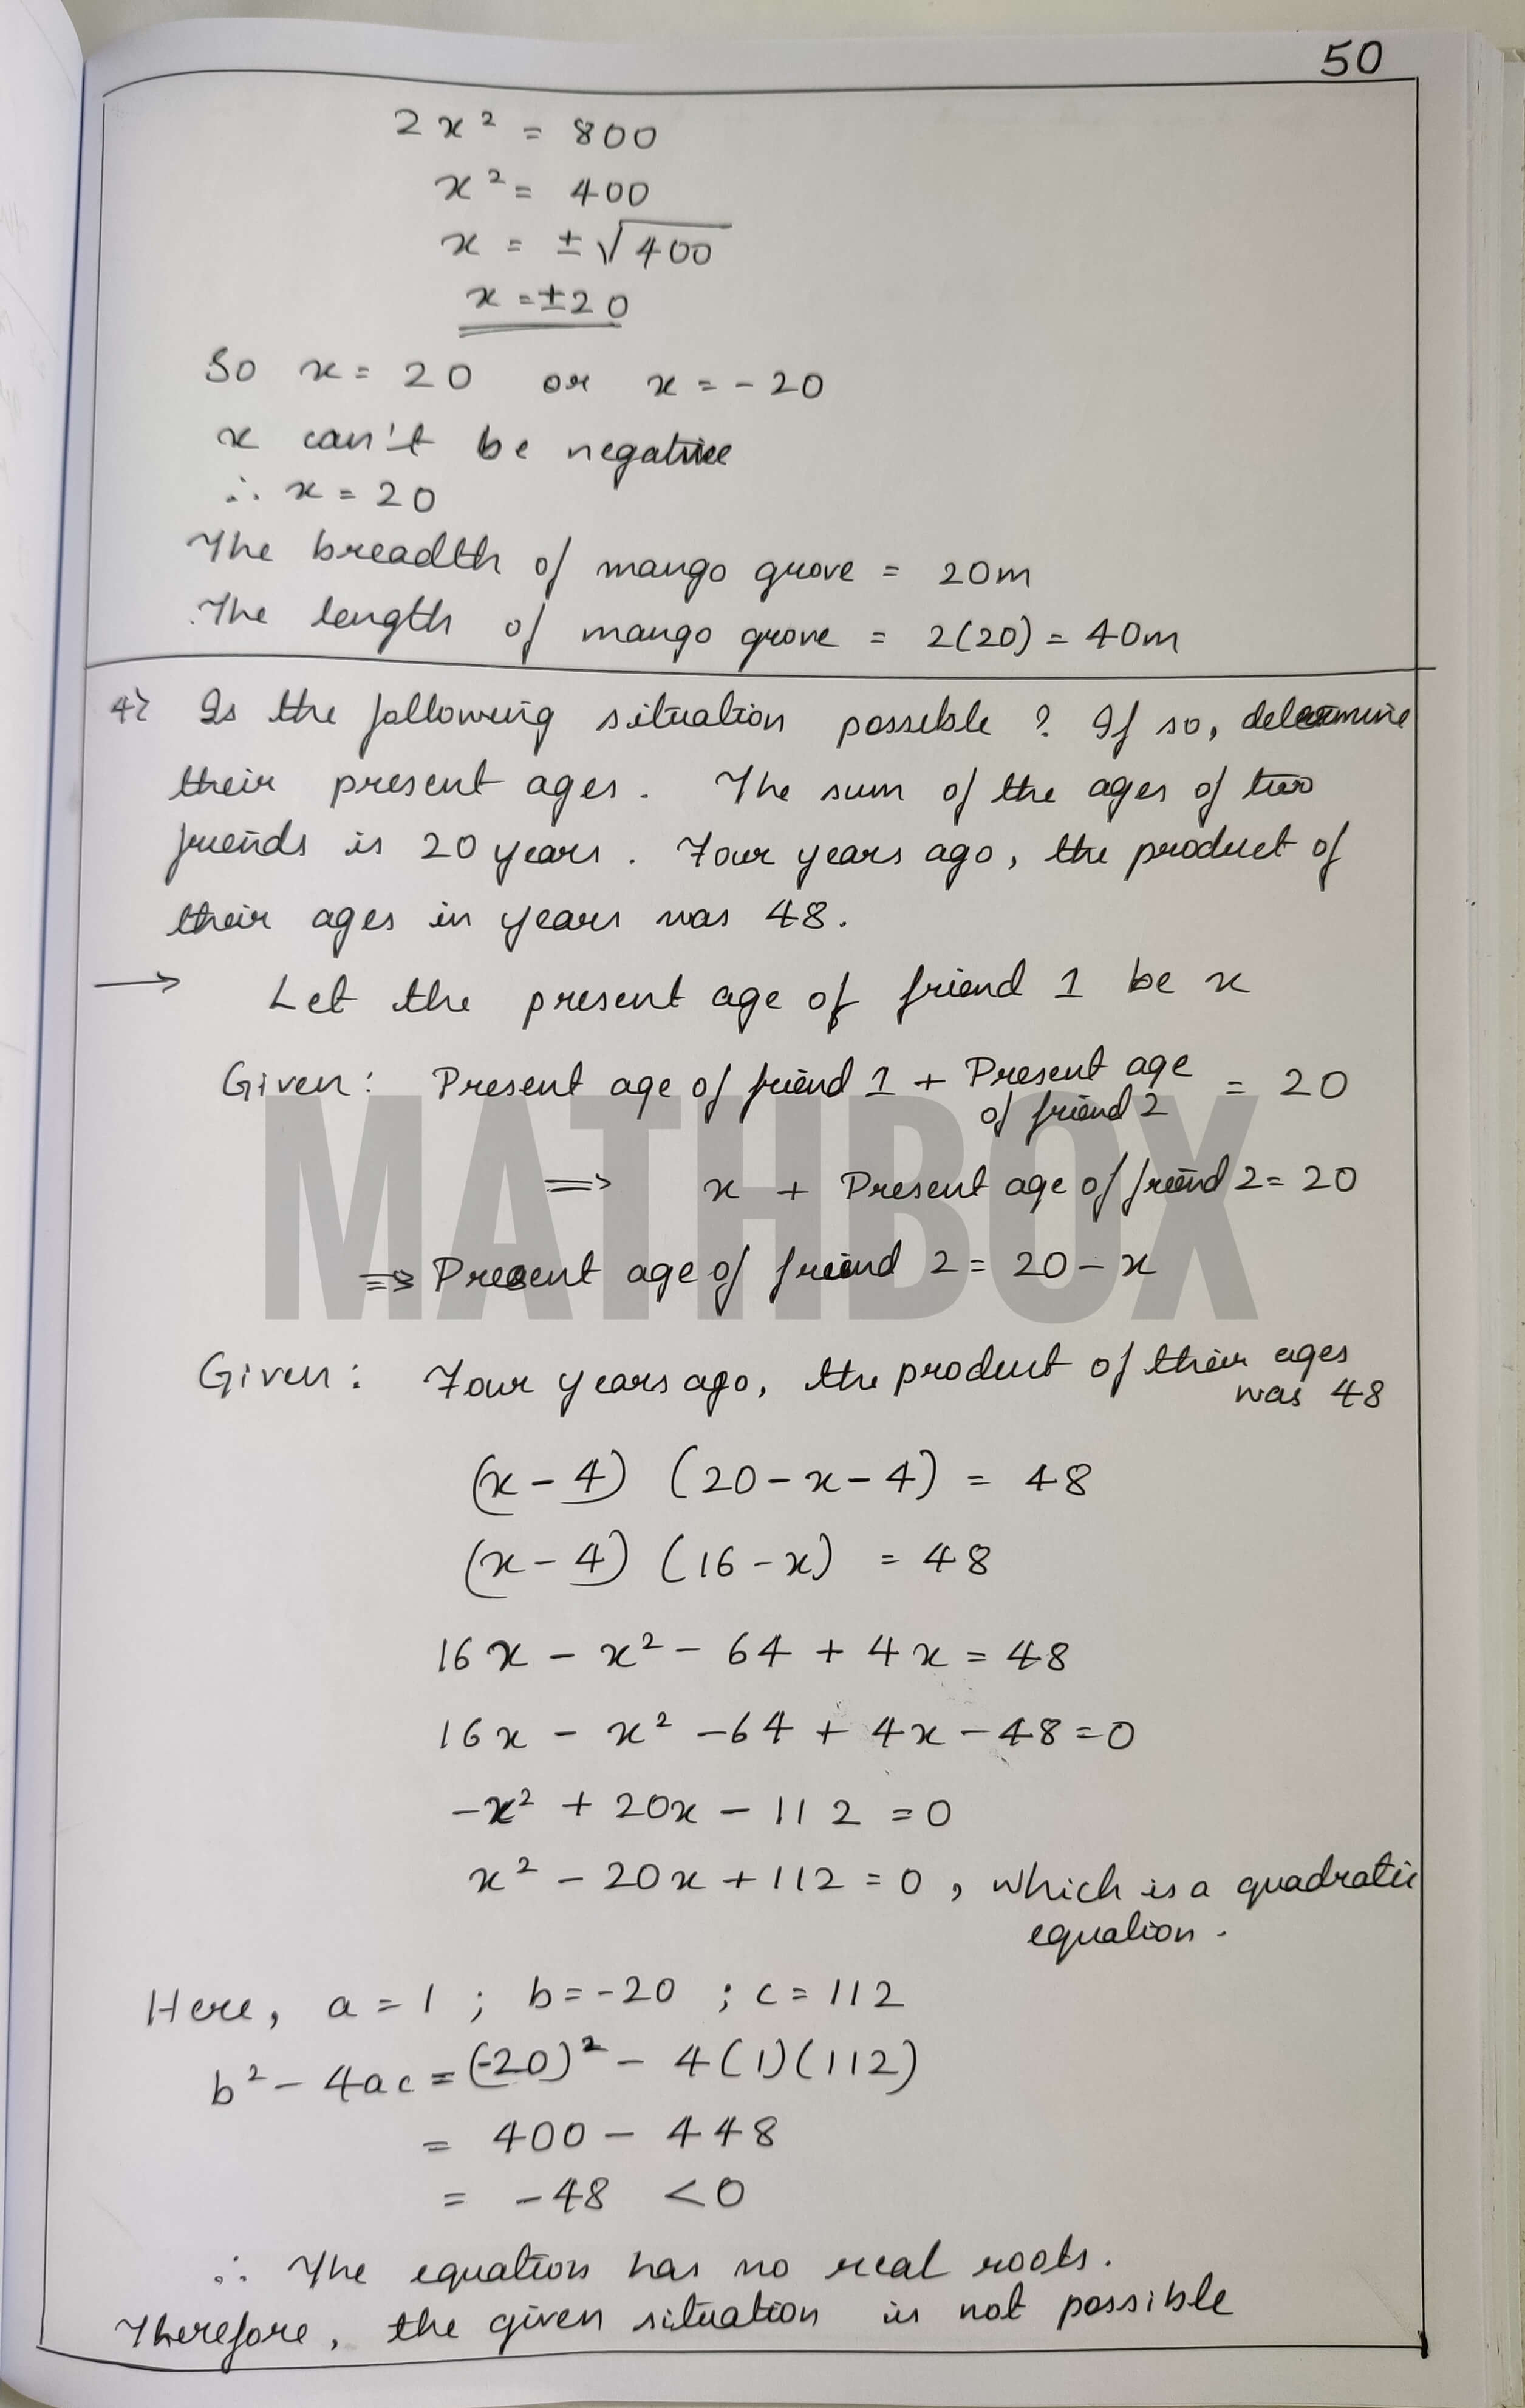 50
2x² = 800
x² = 400
x = ±√400
x = ±20
So x = 20 or x = -20
x can't be negative
∴ x = 20
The breadth of mango grove = 20m
The length of mango grove = 2(20) = 40m
4) Is the following situation possible ? If so, determine
their present ages. The sum of the ages of two
friends is 20 years. Four years ago, the product of
their ages in years was 48.
→ Let the present age of friend 1 be x
Given: Present age of friend 1 + Present age of friend 2 = 20
⇒ x + Present age of friend 2 = 20
⇒ Present age of friend 2 = 20 - x
MATHBOX
Given: Four years ago, the product of their ages
was 48
(x - 4) (20 - x - 4) = 48
(x - 4) (16 - x) = 48
16x - x² - 64 + 4x = 48
16x - x² - 64 + 4x - 48 = 0
-x² + 20x - 112 = 0
x² - 20x + 112 = 0, which is a quadratic
equation.
Here, a = 1 ; b = -20 ; c = 112
b² - 4ac = (-20)² - 4(1)(112)
= 400 - 448
= -48 < 0
∴ The equation has no real roots.
Therefore, the given situation is not possible